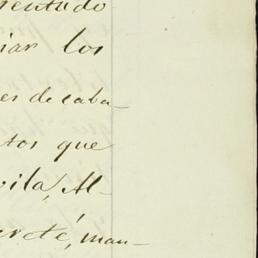 mentado
iar los
es de caba-
tos que
vila, Al-
creté, man-